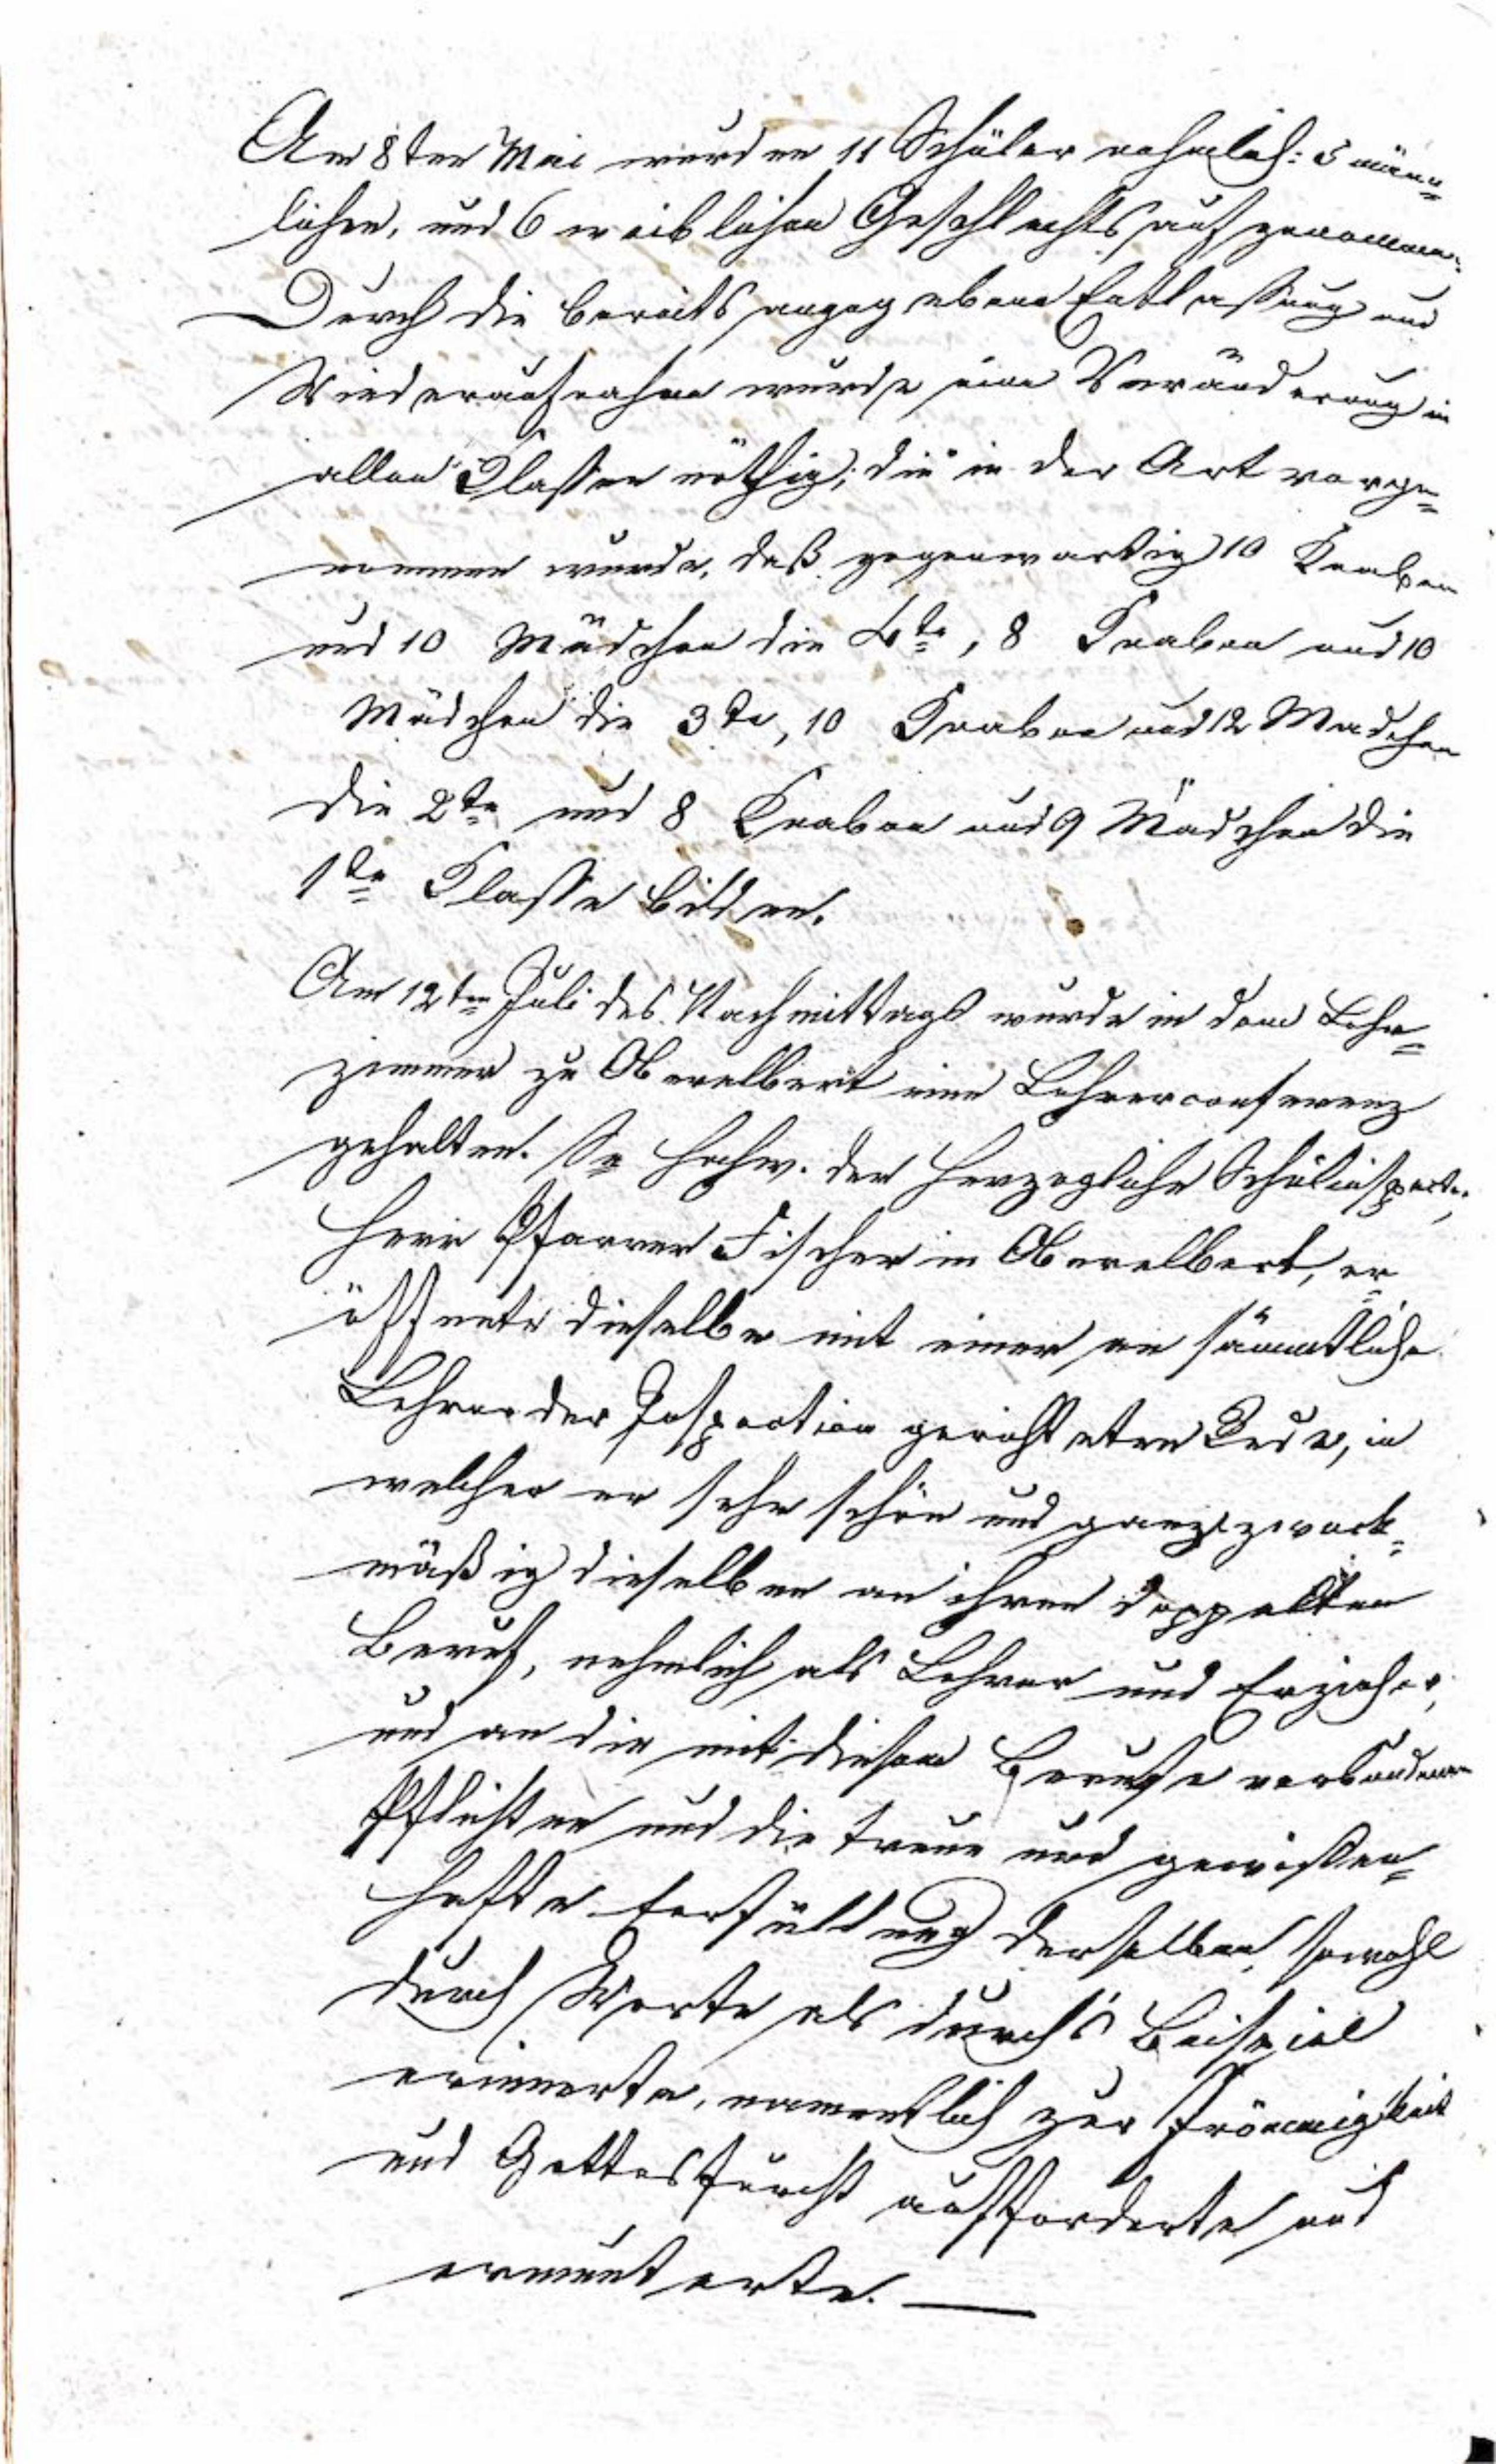 Am 8ten Mai wurden 11 Schüler nehmlich: 5 männ=
lichen, und 6 weiblichen Geschlechts aufgenommen.
Durch die bereits angegebene Entlassung und
Wiederaufnahme wurde eine Veränderung in
allen Klassen nöthig; die in der Art vorge=
nommen wurde, daß gegenwartig 10 Knaben
und 10 Mädchen die 4te, 8 Knaben und 10
Mädchen die 3te, 10 Knaben und 12 Madchen
die 2te und 8 Knaben und 9 Mädchen die
1te Klasse bilden.
Am 12ten Juli des Nachmittags wurde in dem Lehr=
zimmer zu Oberelbert eine Lehrerconferenz
gehalten. Se Hochw. der Herzogliche Schulinspector,
Herr Pfarrer Fischer in Oberelbert, er=
öffnete dieselbe mit einer an sämmtliche
Lehrer der Inspection gerichteten Rede, in
welcher er sehr schön und ganz zweck=
mäßig dieselben an ihren doppelten
Beruf, nehmlich als Lehrer und Erzieher,
und an die mit diesem Berufe verbundenen
Pflichten und die treue und gewissen=
hafte Erfüllung derselben, sowohl
durch Worte als durch's Beispiel
erinnerte, namentlich zur Frömmigkeit
und Gottesfurcht aufforderte und
ermunterte. —